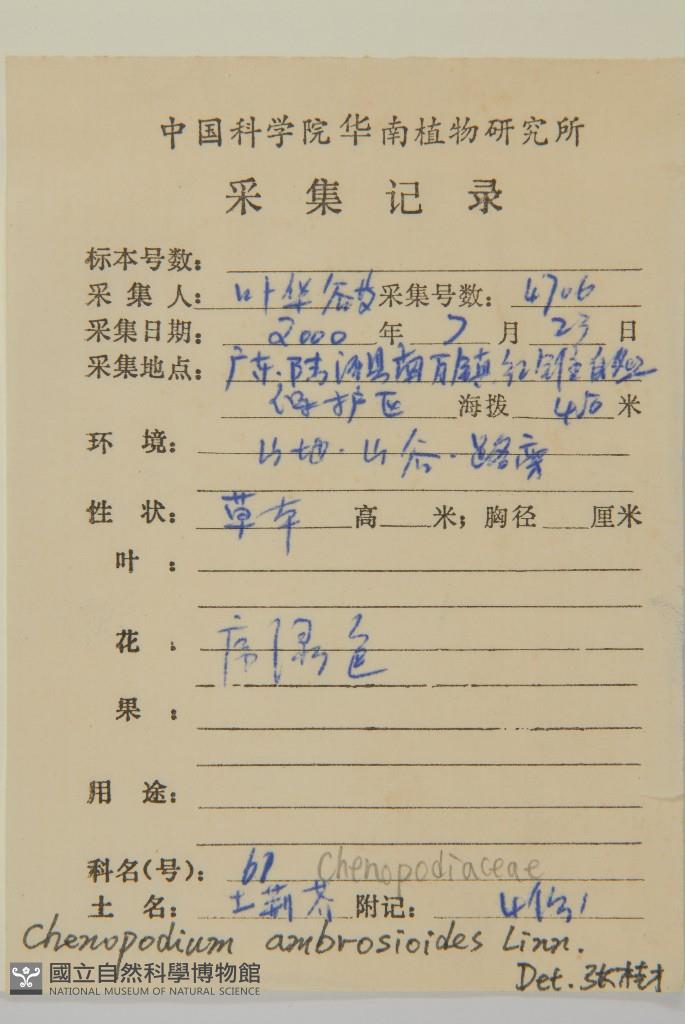 中国科学院华南植物研究所
采集记录
标本号数:
采集人: 叶华谷 采集号数: 4706
采集日期: 2000 年 7 月 23 日
采集地点: 广东·陆河县南万镇红锥自然
保护区 海拨 450 米
环境: 山地·山谷·路旁
性状: 草本 高 米; 胸径 厘米
叶:
花: 绿色
果:
用途:
科名(号): 61 Chenopodiaceae
土名: 土荆芥 附记: 4份
Chenopodium ambrosioides Linn.
Det. 张桂才
國立自然科學博物館
NATIONAL MUSEUM OF NATURAL SCIENCE